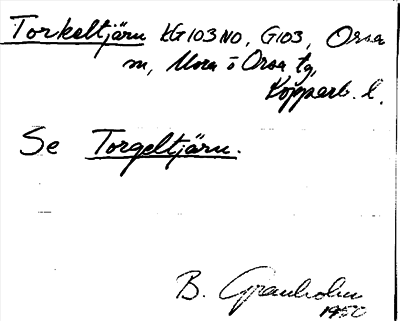 Torkeltjärn KG103NO, G103, Orsa
sn, Mora o Orsa tg,
Kopparb. l.
Se Torgeltjärn.
B. Granholm
1950